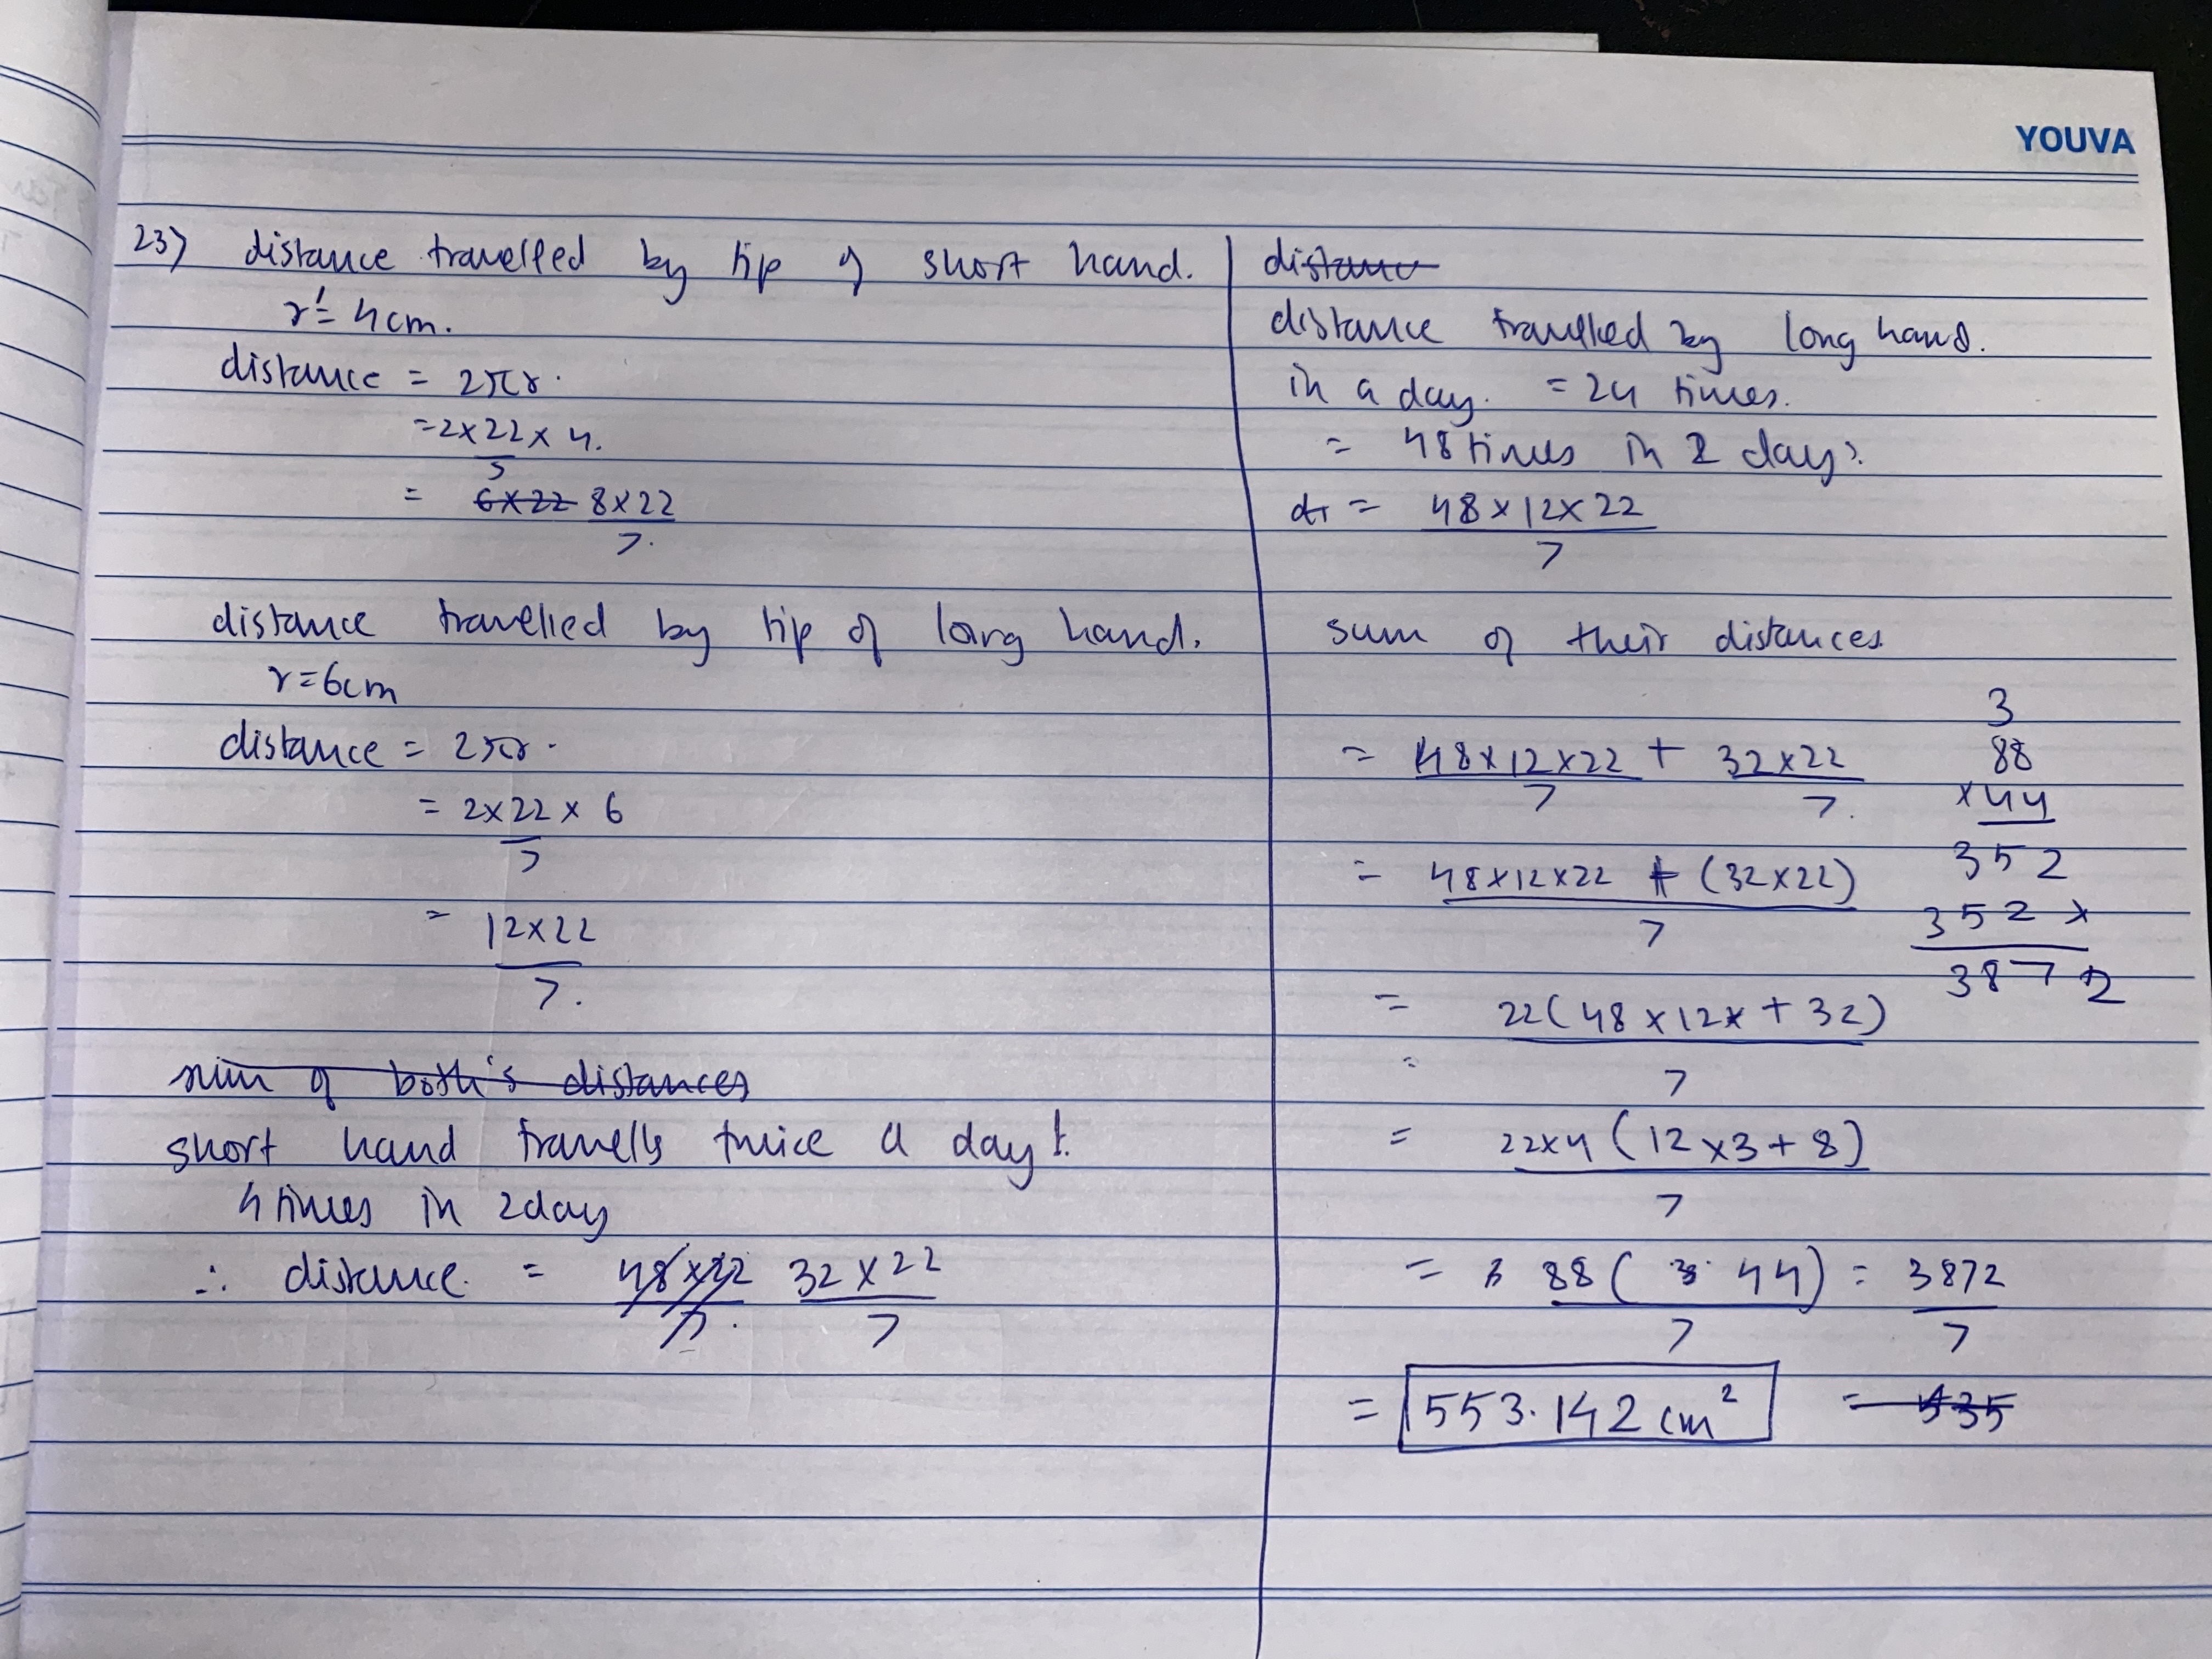 YOUVA
23) distance travelled by tip of short hand.
r = 4cm.
distance = 2πr.
= 2 × 22/7 × 4.
= 6×22 8×22/7.
distance travelled by tip of long hand.
r = 6cm
distance = 2πr.
= 2×22/7 × 6
= 12×22/7.
sum of both's distances
short hand travells twice a day.
4 times in 2day
∴ distance = 48×22/7. 32×22/7
distance
distance travelled by long hand.
in a day. = 24 times.
= 48 times in 2 days.
= 48×12×22/7
sum of their distances
= 48×12×22/7 + 32×22/7.
= 48×12×22 + (32×22)/7
= 22(48×12× + 32)/7
= 22×4(12×3+8)/7
= 88(44)/7 = 3872/7
= 553.142 cm²
3
88
×44
352
352×
3872